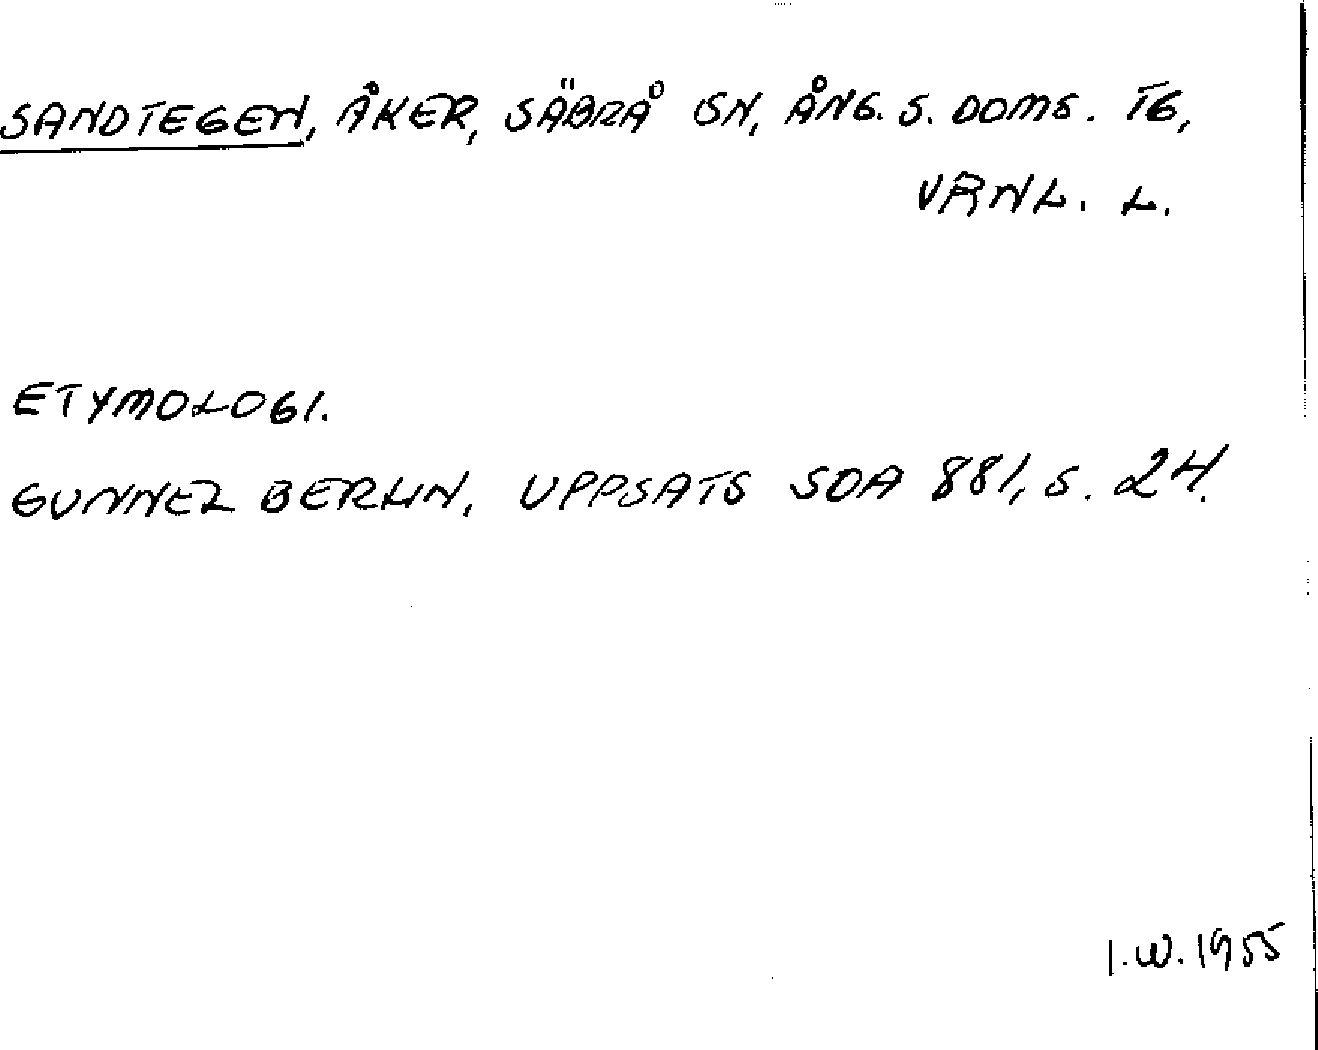 SANDTEGEN, ÅKER, SÄBRÅ SN, ÅNG. S. DOMS. TG,
VRNL. L.
ETYMOLOGI.
GUNNEL BERLIN, UPPSATS SOA 881, S. 24.
I.W. 1955